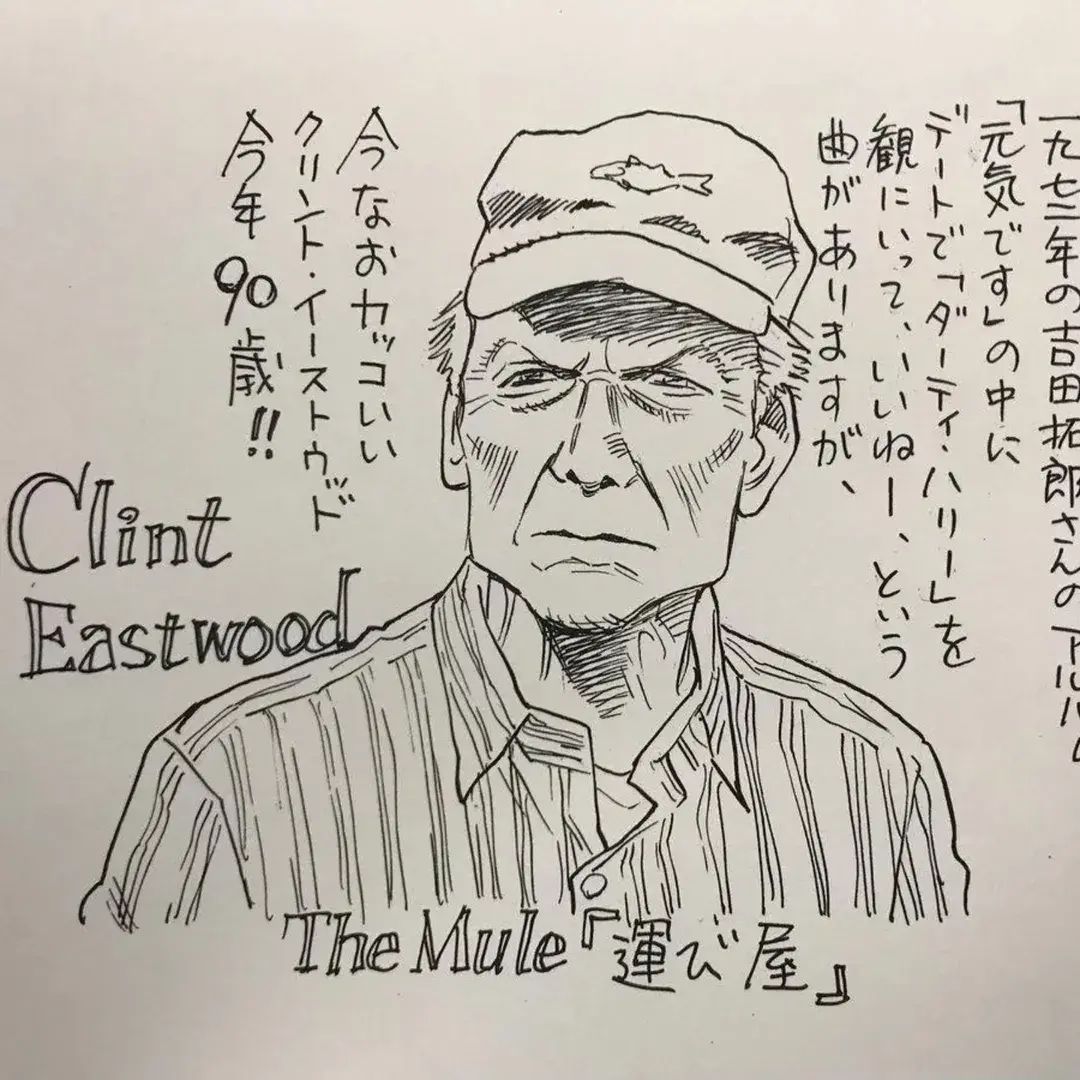 一九七二年の吉田拓郎さんのアルバム
「元気です」の中に
デートで「ダーティ・ハリー」を
観にいって、いいねー、という
曲がありますが、
今なおカッコいい
クリント・イーストウッド
今年90歳!!
Clint
Eastwood
The Mule『運び屋』